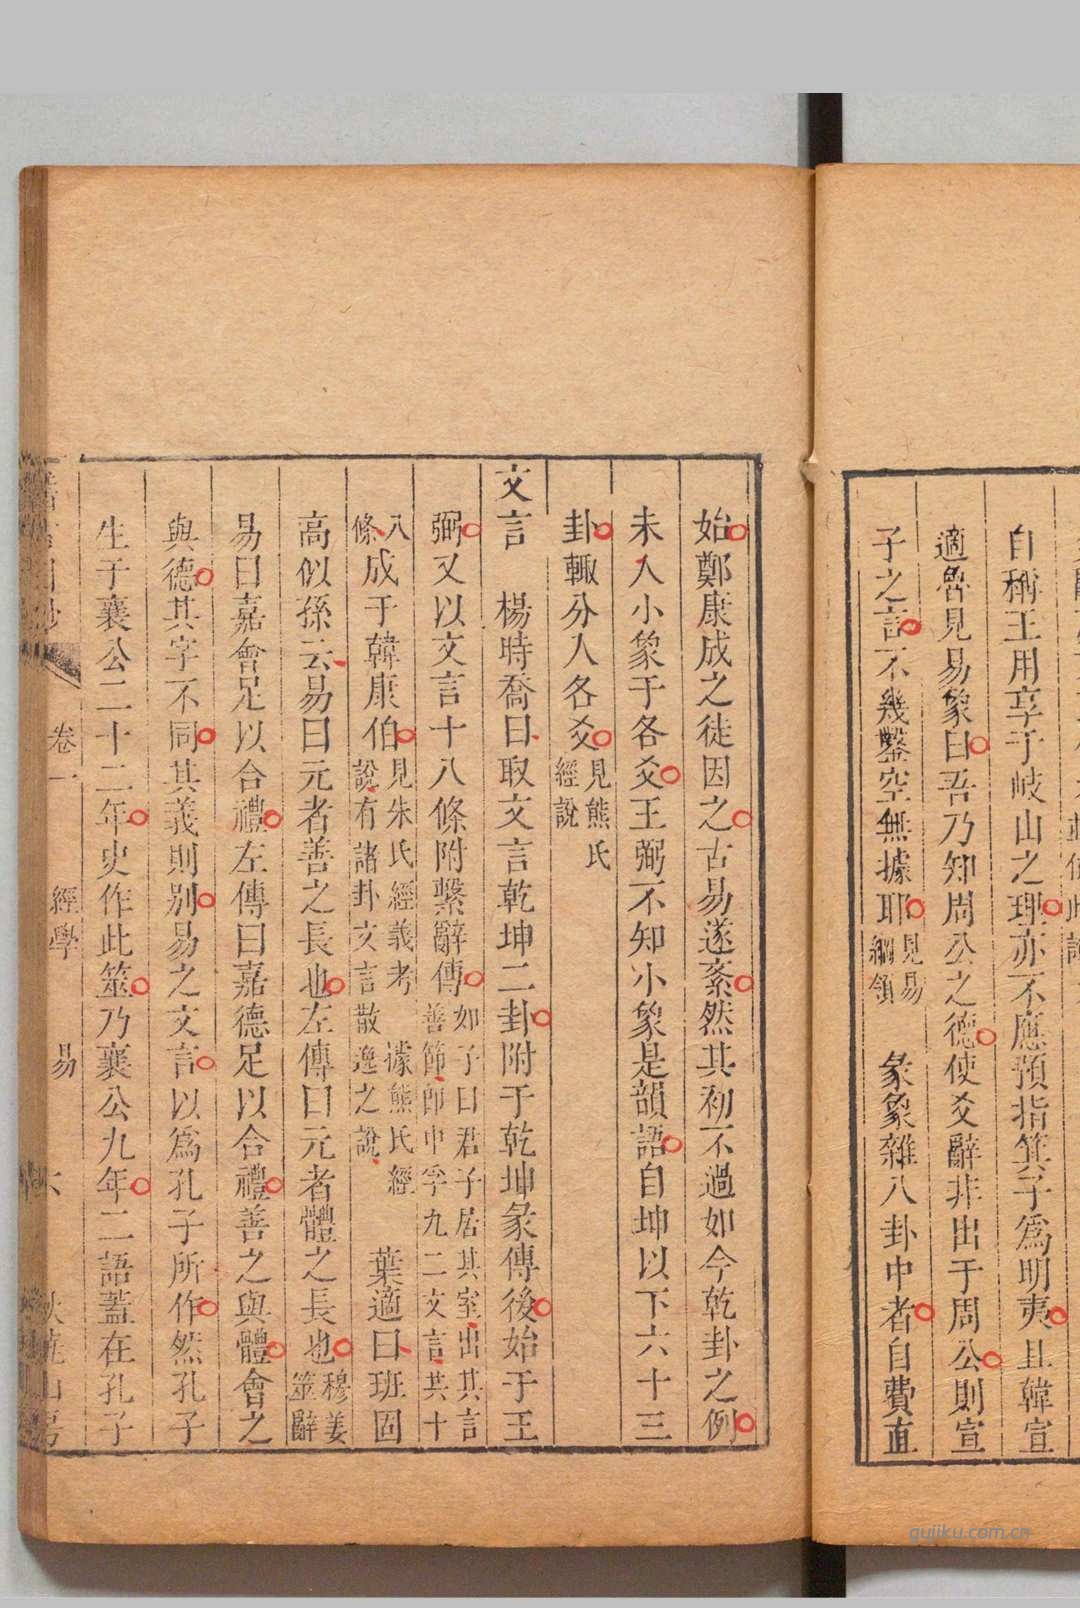 自稱王用享于岐山之理亦不應預指箕子爲明夷且韓宣
適魯見易象曰吾乃知周公之德使爻辭非出于周公則宣
子之言不幾鑿空無據耶見易綱領 彖象雜八卦中者自費直
始鄭康成之徒因之古易遂紊然其初不過如今乾卦之例
未入小象于各爻王弼不知小象是韻語自坤以下六十三
卦輙分入各爻見熊氏經說
文言 楊時喬曰取文言乾坤二卦附于乾坤彖傳後始于王
弼又以文言十八條附繫辭傳如子曰君子居其室出其言善節卽中孚九二文言共十
八條成于韓康伯見朱氏經義考說有諸卦文言散逸之說據熊氏經 葉適曰班固
高似孫云易曰元者善之長也左傳曰元者體之長也穆姜筮辭
易曰嘉會足以合禮左傳曰嘉德足以合禮善之與體會之
與德其字不同其義則別易之文言以爲孔子所作然孔子
生于襄公二十二年史作此筮乃襄公九年二語蓋在孔子
卷一 經學 易
gujiku.com.cn